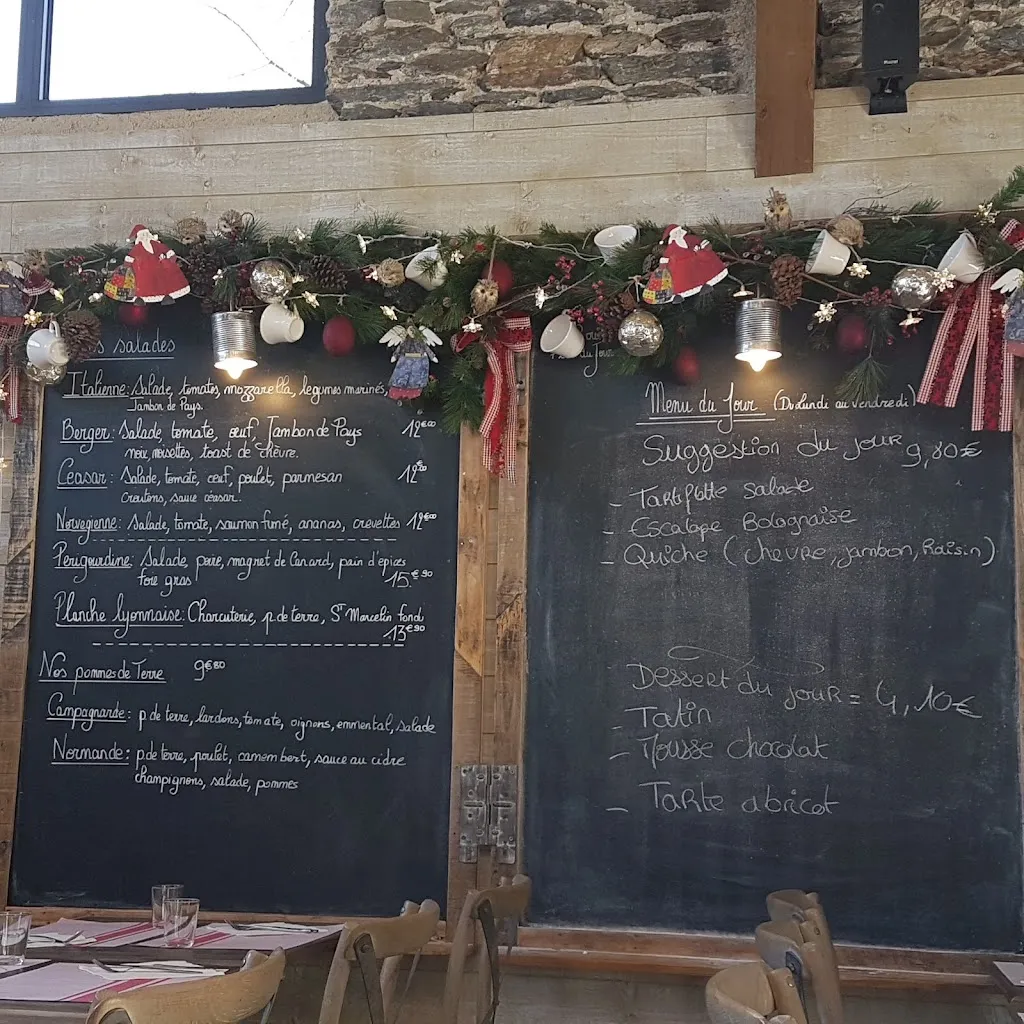 s salades
Italienne: Salade, tomates, mozzarella, légumes marinés,
Jambon de Pays.
Berger: Salade, tomate, œuf, Jambon de Pays 12€00
noix, noisettes, toast de chèvre.
Ceasar: Salade, tomate, œuf, poulet, parmesan 12€00
croutons, sauce ceasar.
Norvegienne: Salade, tomate, saumon fumé, ananas, crevettes 12€00
Périgourdine: Salade, poire, magret de Canard, pain d'épices
foie gras 15€90
Planche lyonnaise: Charcuterie, p.de terre, St Marcelin fondu
13€90
Nos pommes de Terre 9€80
Campagnarde: p de terre, lardons, tomate, oignons, emmental, salade
Normande: p.de terre, poulet, camembert, sauce au cidre
champignons, salade, pommes
du Jour
Menu du Jour (Du Lundi au Vendredi)
Suggestion du jour 9,80€
- Tartiflette salade
- Escalope Bolognaise
- Quiche (chevre, jambon, Raisin)
Dessert du jour = 4,10€
- Tatin
- Mousse chocolat
- Tarte abricot